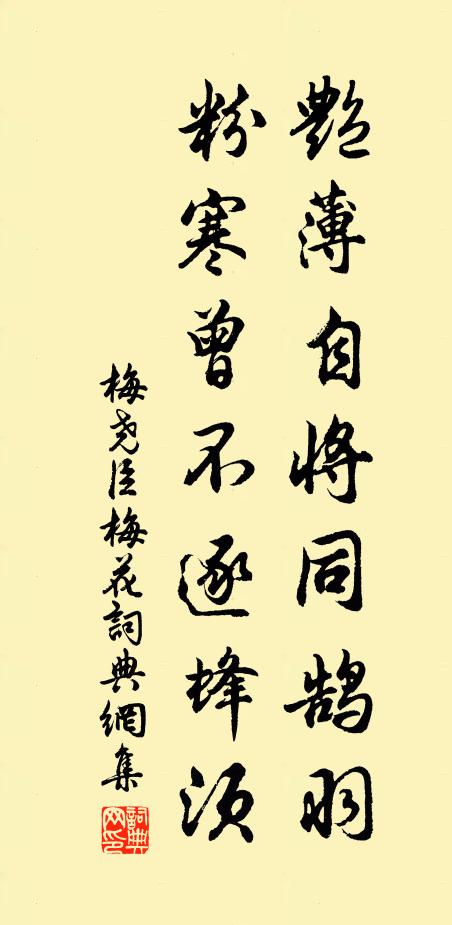 艷薄自將同鹄羽
粉寒曾不逐蜂须
梅尧臣梅花詞典網集
詞典网印